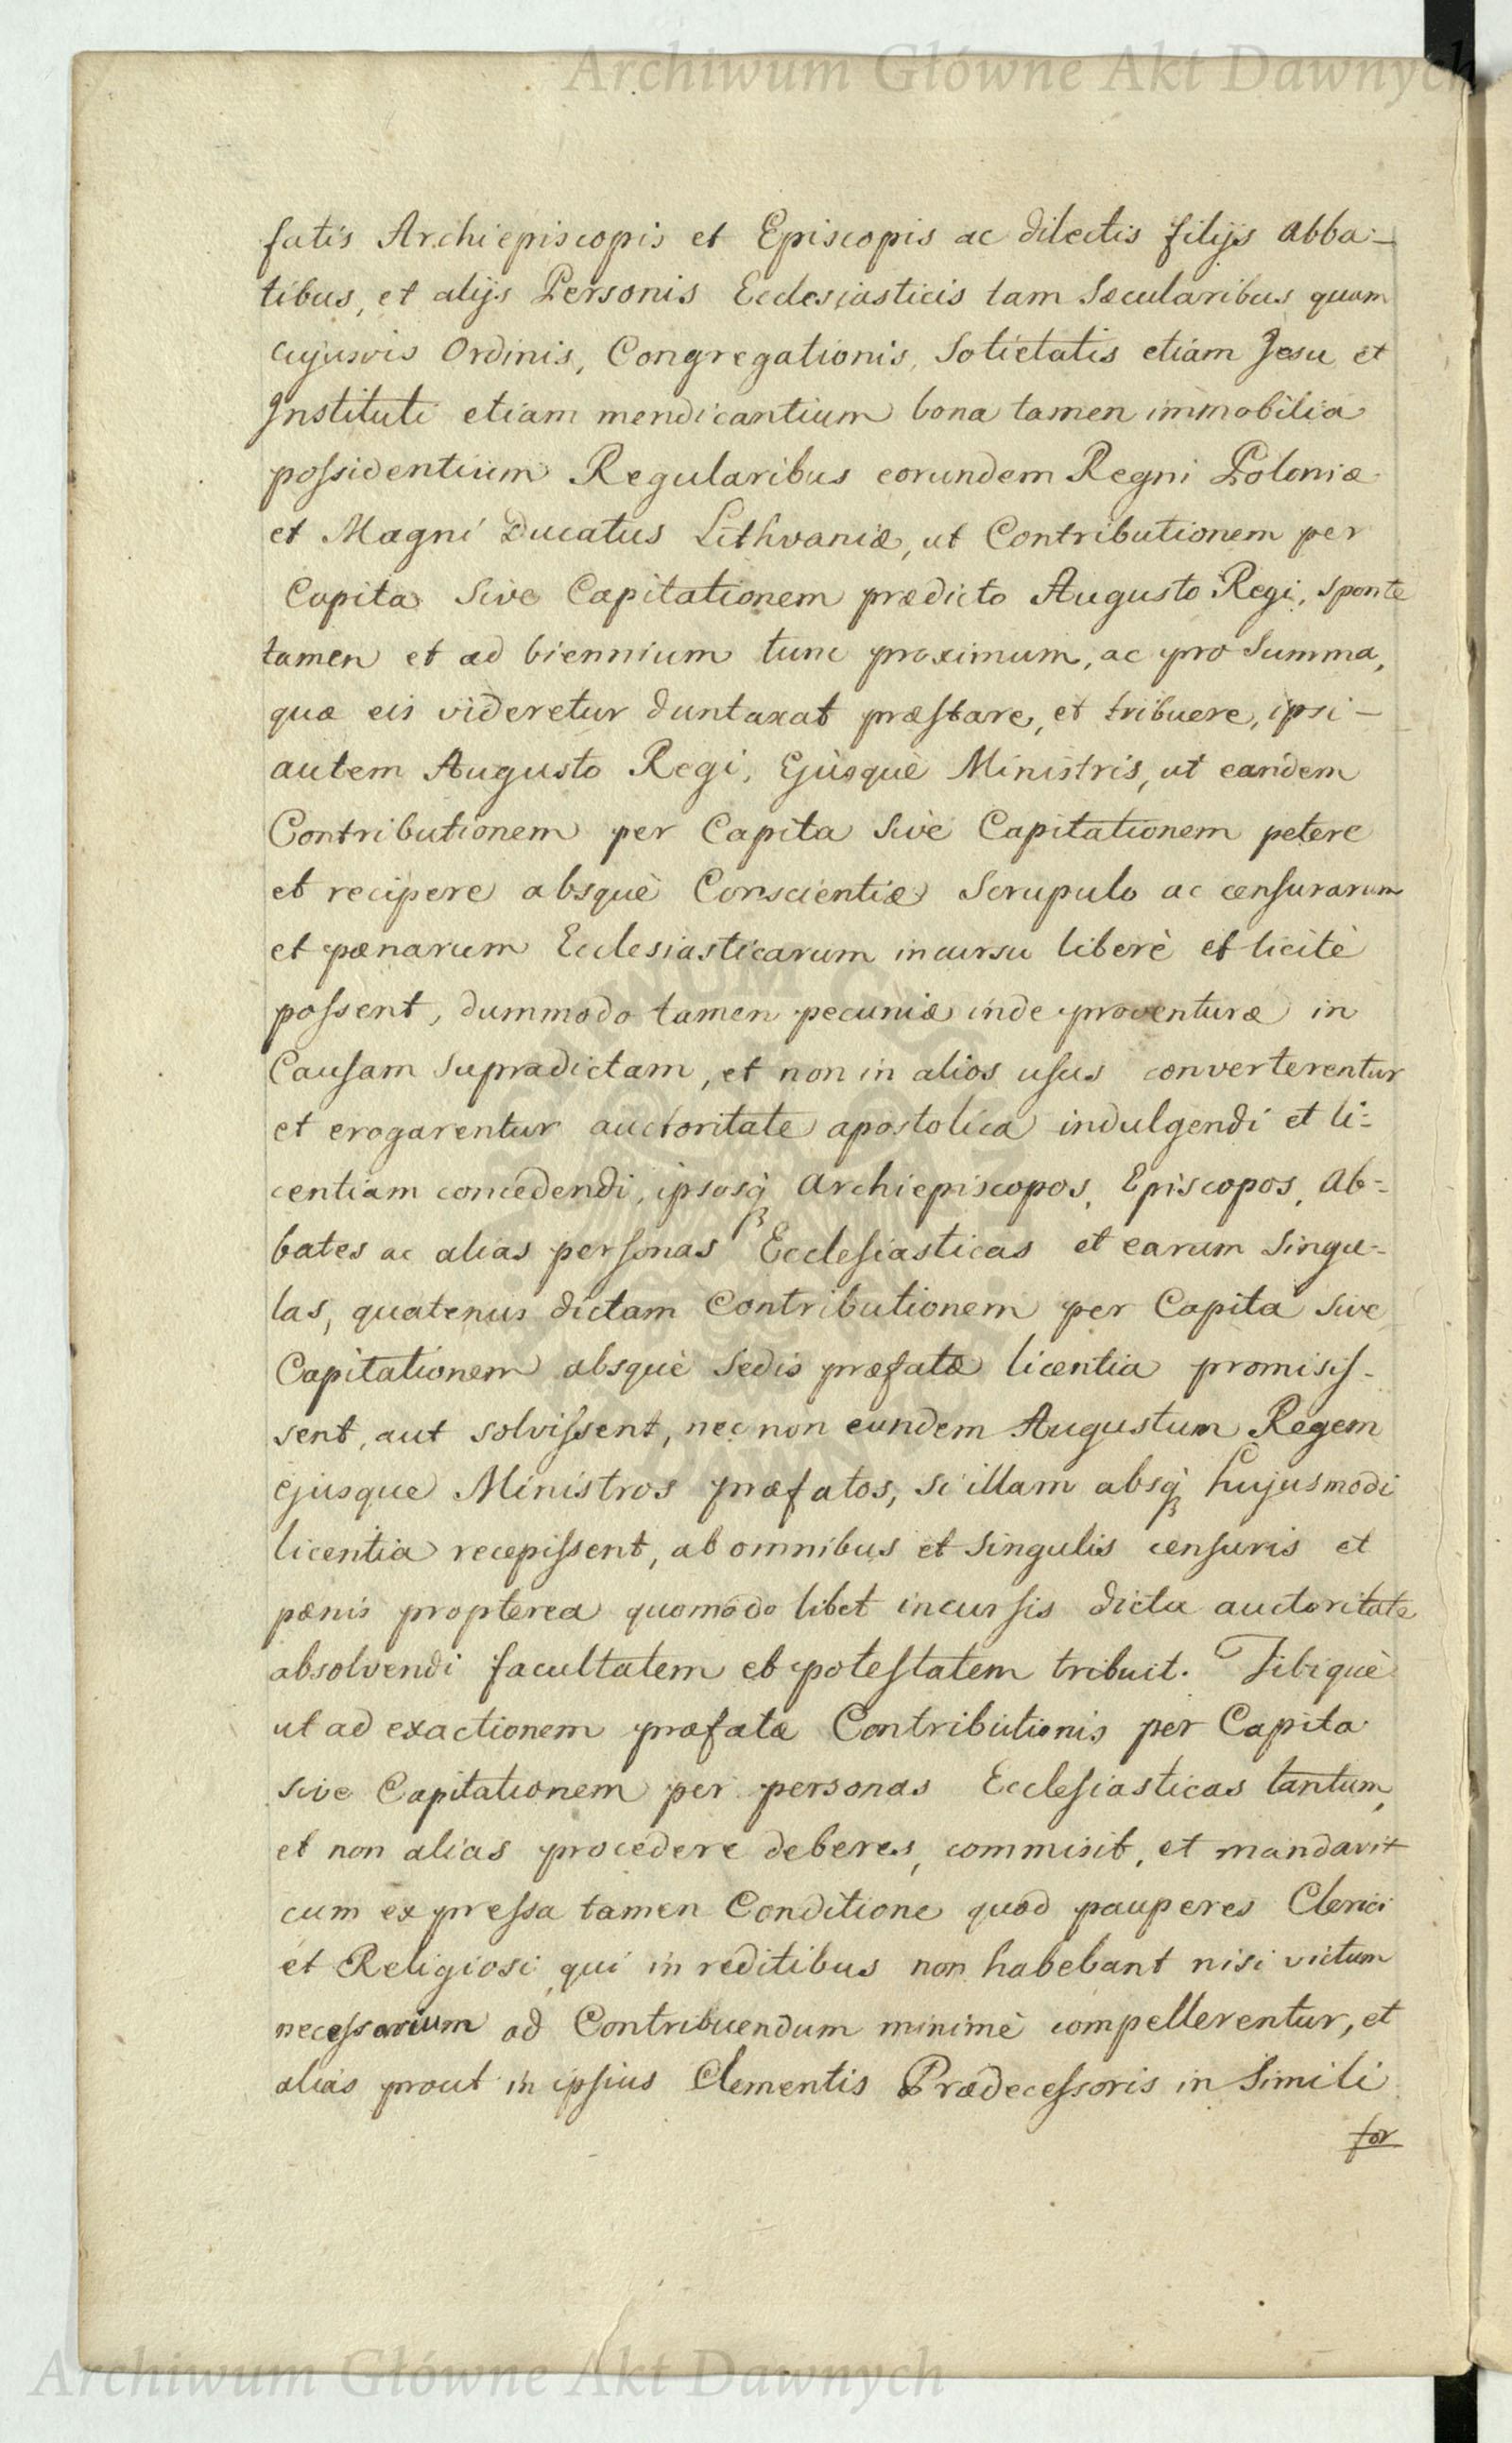 Archiwum Główne Akt Dawnych
fatis Archiepiscopis et Episcopis ac dilectis filijs Abba-
tibus, et alijs Personis Ecclesiasticis tam Sæcularibus quam
cujusvis Ordinis, Congregationis, Sotietatis etiam Jesu et
Instituti etiam mendicantium bona tamen immobilia
possidentium Regularibus eorundem Regni Poloniæ
et Magni Ducatus Lithvaniæ, ut Contributionem per
Capita Sive Capitationem prædicto Augusto Regi, sponte
tamen et ad biennium tunc proximum, ac pro Summa,
quæ eis videretur duntaxat præstare, et tribuere, ipsi-
autem Augusto Regi, Ejùsquè Ministris, ut eandem
Contributionem per Capita Sivè Capitationem petere
et recipere absquè Conscientiæ Scrupulo ac censurarum
et pænarum Ecclesiasticarum incursu liberè et licitè
possent, dummodo tamen pecuniæ inde proventuræ in
Causam Supradictam, et non in alios usus converterentur
et erogarentur auctoritate apostolica indulgendi et li-
centiam concedendi, ipsosq́ Archiepiscopos, Episcopos, Ab-
bates ac alias personas Ecclesiasticas et earum Singu-
las, quatenus dictam Contributionem per Capita Sive
Capitationem absquè Sedis præfatæ licentia promisis-
sent, aut solvissent, nec non eundem Augustum Regem
ejusque Ministros præfatos, si illam absq́ hujusmodi
licentia recepissent, ab omnibus et Singulis censuris et
pænis propterea quomodo libet incursis dicta auctoritate
absolvendi facultatem et potestatem tribuit. Tibiquè
ut ad exactionem præfatæ Contributionis per Capita
sive Capitationem per personas Ecclesiasticas tantum,
et non alias procedere deberes, commisit, et mandavit
cum expressa tamen Conditione quod pauperes Clerici
et Religiosi, qui in reditibus non habebant nisi victum
necessarium ad Contribuendum minimè compellerentur, et
alias prout in ipsius Clementis Prædecessoris in Simili
for
Archiwum Główne Akt Dawnych